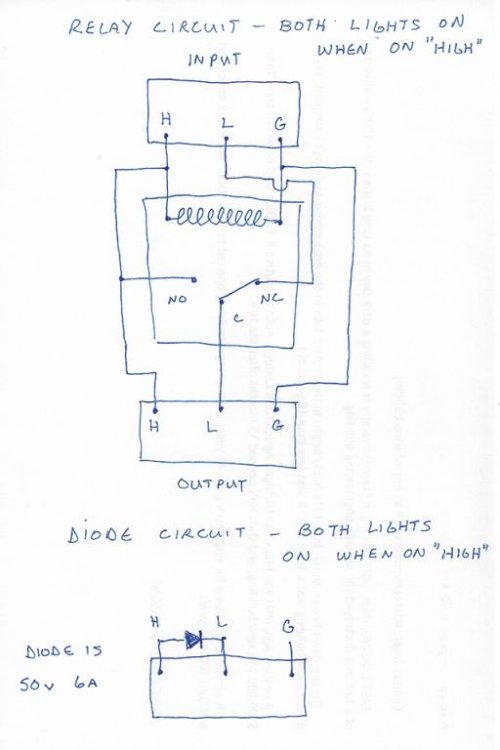 RELAY CIRCUIT - BOTH LIGHTS ON
WHEN ON "HIGH"
INPUT
H L G
NO NC
C
H L G
OUTPUT
DIODE CIRCUIT - BOTH LIGHTS
ON WHEN ON "HIGH"
H L G
DIODE IS
50V 6A